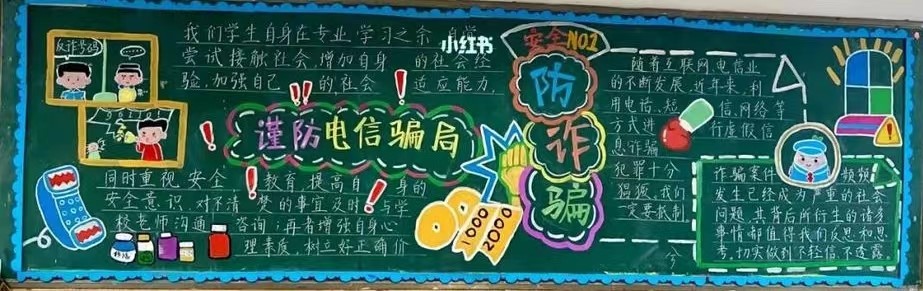 反诈号码
我们学生自身在专业学习之余
尝试接触社会,增加自身 的社会经
验,加强自己 的社会 适应能力
小红书
谨防电信骗局
同时重视安全 教育,提高自 身的
安全意识,对不清楚的事宜及时 与学
校老师沟通 咨询;再者增强自身心
理素质,树立好正确价
1000
2000
安全NO.1
防
诈
骗
随着互联网电信业
的不断发展,近年来,利
用电话、短 信、网络等
方式进 行虚假信
息诈骗
犯罪十分
猖獗,我们
一定要抵制
诈骗案件 频频
发生已经成为严重的社会
问题,其背后所衍生的诸多
事情都值得我们反思和思
考,切实做到不轻信、不透露